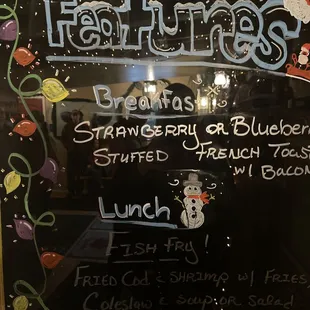 Features
Breakfast
STRAWBERRY OR Blueberr
STUFFED FRENCH TOAST
w/ BACON
Lunch
FISH FRY!
FRIED COD & SHRIMP w/ FRIES
Coleslaw & soup OR salad